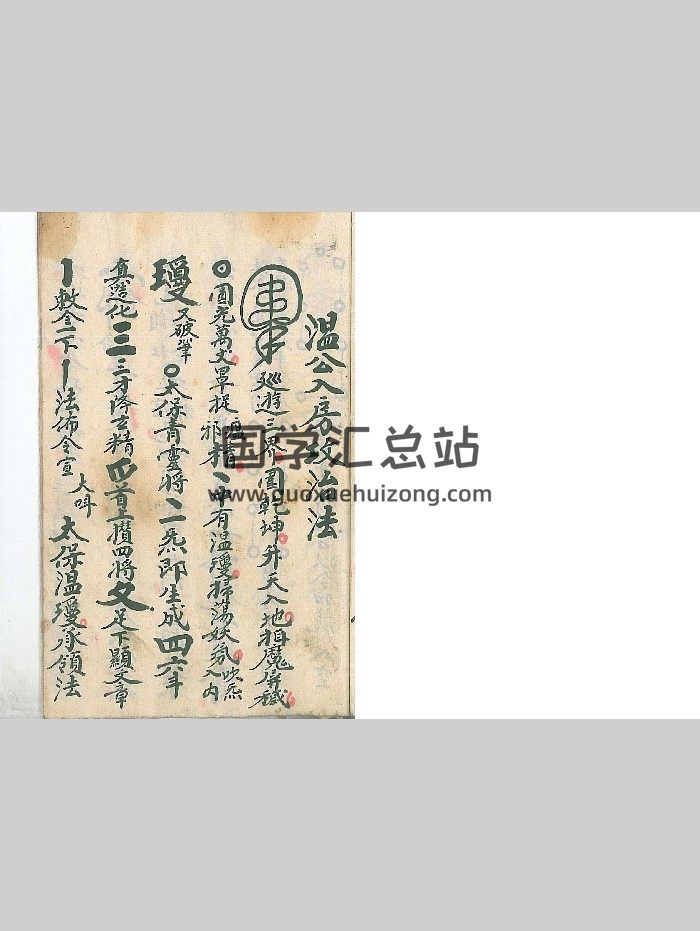 溫公入房效治法
巡遊三界 圍乾坤 升天入地 捉魔屏穢
圓光萬丈 罩捉 瘟精 邪精 有溫瓊 掃蕩妖氛 吹炁入內
瓊 又破筆 太保青靈將 二炁即生成 四六年
真造化 三三才降玄精 四首上攢四將 文足下顯文章
敕令一下 法佈令宣 大叫 太保溫瓊承領法
国学汇总站
www.guoxuehuizong.com